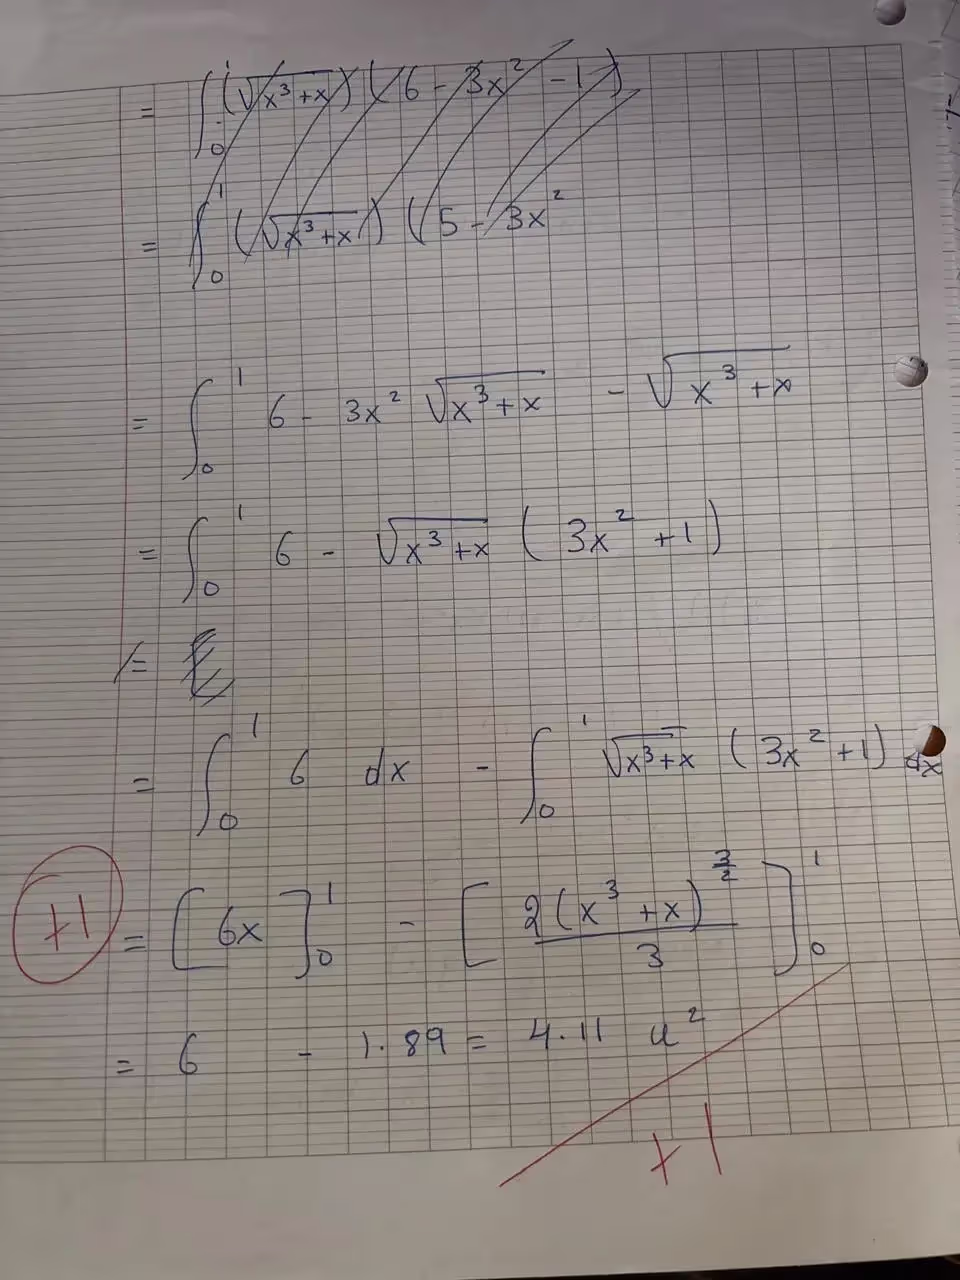 = ∫₀¹ (√x³+x) (6 - 3x² - 1)
= ∫₀¹ (√x³+x) (5 - 3x²
= ∫₀¹ 6 - 3x² √x³+x - √x³+x
= ∫₀¹ 6 - √x³+x (3x² +1)
=
= ∫₀¹ 6 dx - ∫₀¹ √x³+x (3x² +1) dx
+1 = [6x]₀¹ - [2(x³ +x)^3/2 / 3]₀¹
= 6 - 1.89 = 4.11 u²
+1